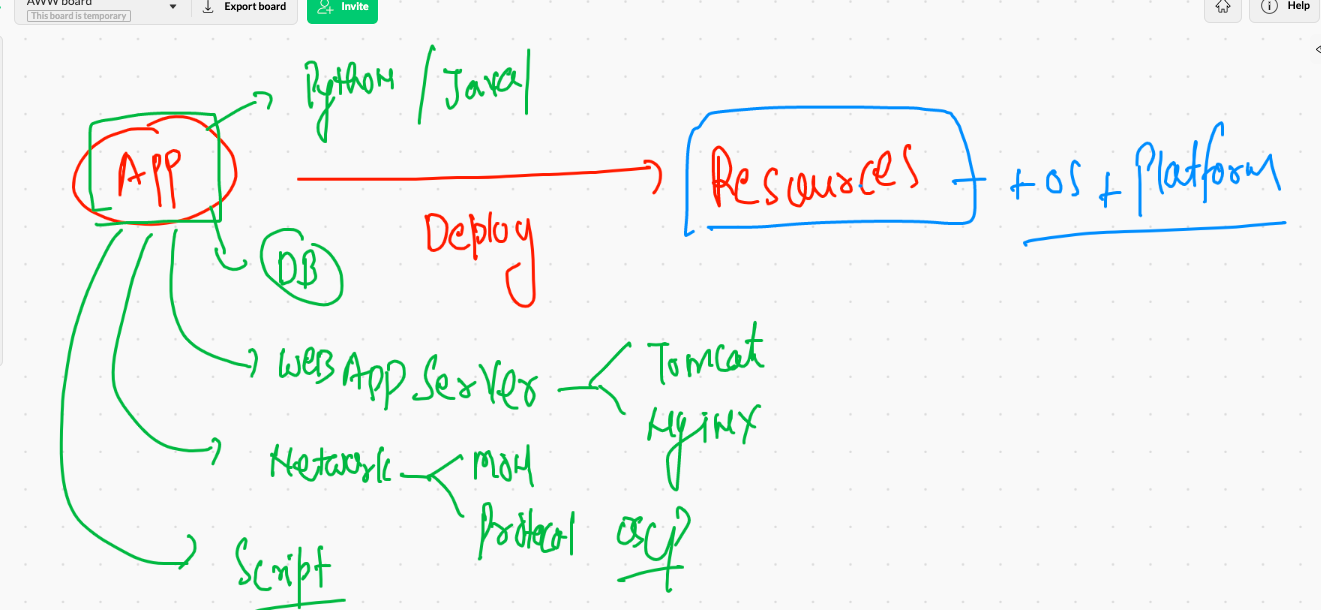 AWW board
This board is temporary
Export board
Invite
Help
Python / Java
APP
Deploy
Resources
+ OS + Platform
DB
WEB APP Server
Tomcat
Nginx
Network
Protocol
Script